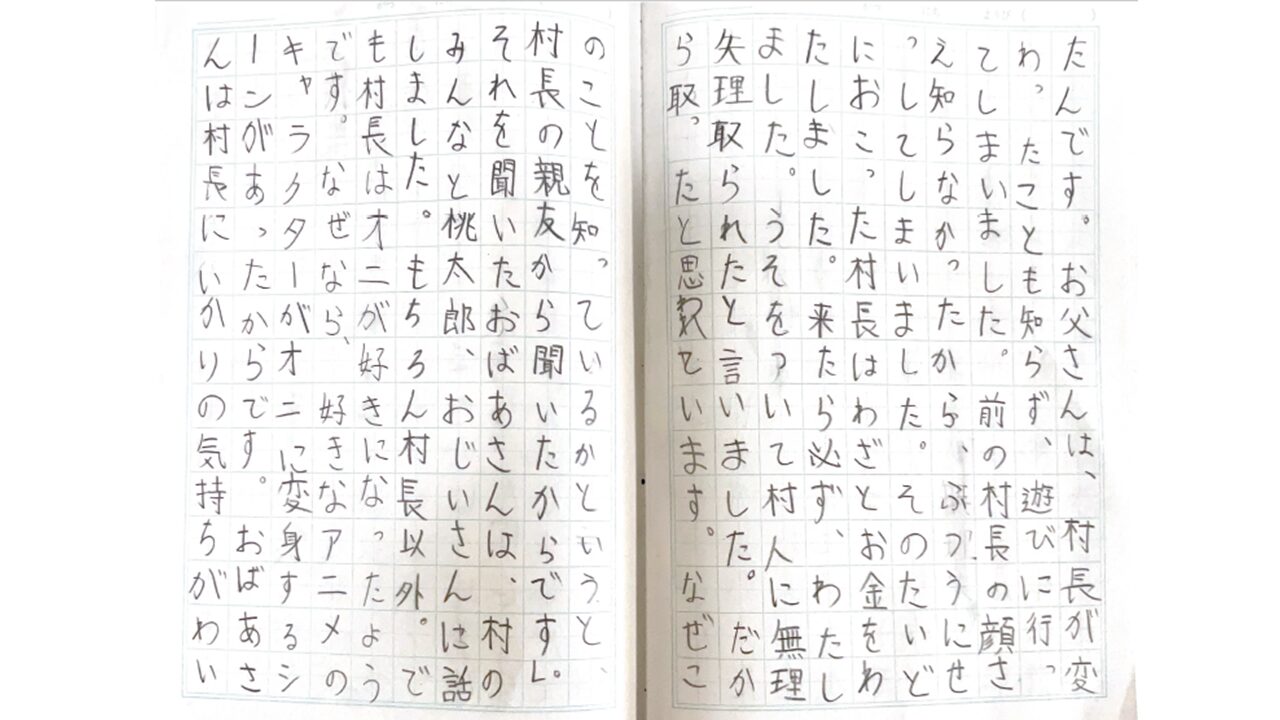 たんです。お父さんは、村長が変
わったことも知らず、遊びに行っ
てしまいました。前の村長の顔さ
え知らなかったから、ふつうにせ
っしてしまいました。そのたいど
におこった村長はわざとお金をわ
たしました。来たら必ず、わたし
ました。うそをついて村人に無理
矢理取られたと言いました。だか
ら取ったと思われています。なぜこ
のことを知っているかというと、
村長の親友から聞いたからです」。
それを聞いたおばあさんは、村の
みんなと桃太郎、おじいさんに話
しました。もちろん村長以外。で
も村長はオニが好きになったよう
です。なぜなら、好きなアニメの
キャラクターがオニに変身するシ
ーンがあったからです。おばあさ
んは村長にいかりの気持ちがわい